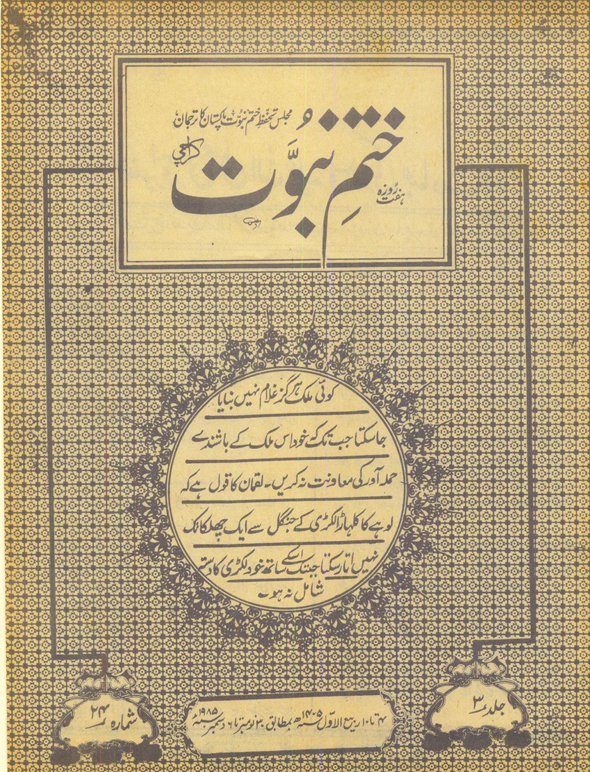 مجلس تحفظ ختم نبوّت پاکستان کا ترجمان
ہفت روزہ
ختمِ نبوَّت
کراچی
کوئی ملک ہرگز غلام نہیں بنایا
جا سکتا جب تک کہ خود اس ملک کے باشندے
حملہ آور کی معاونت نہ کریں۔ لقمان کا قول ہے کہ
لوہے کا کلہاڑا لکڑی کے جنگل سے ایک چھلکا تک
نہیں اتار سکتا جب تک اسکے ساتھ خود لکڑی کا دستہ
شامل نہ ہو۔
جلد ۳
۴ تا ۱۰ ربیع الاوّل ۱۴۰۵ھ بمطابق ۳۰ نومبر تا ۶ دسمبر ۱۹۸۵ء
شمارہ ۲۴